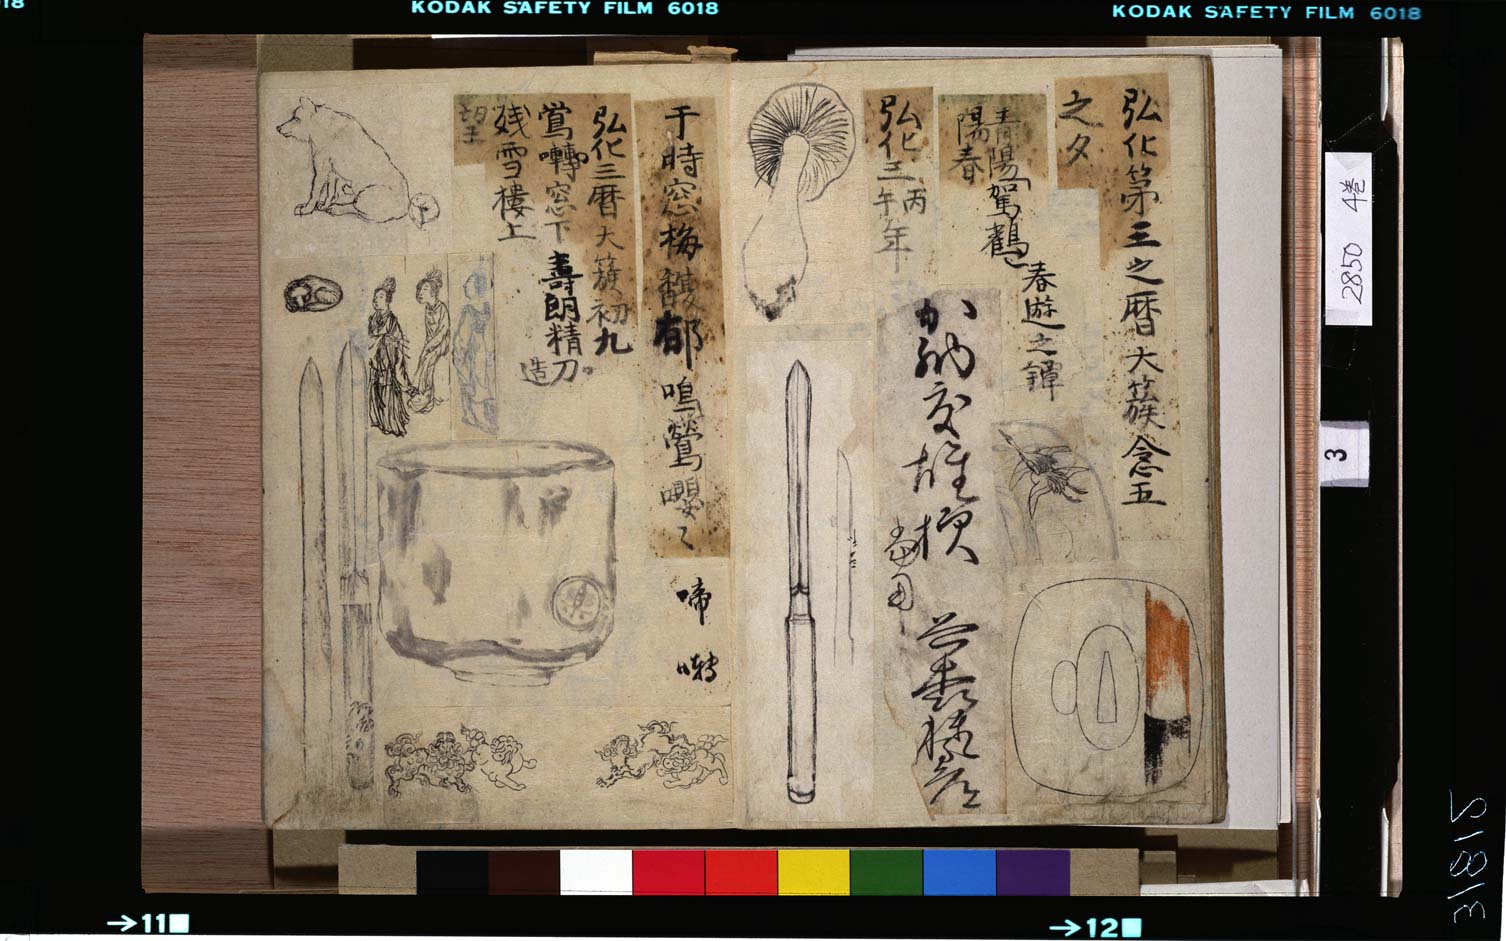 KODAK SAFETY FILM 6018
KODAK SAFETY FILM 6018
弘化第三之暦大簇念五
之夕
青陽駕鶴
陽春
春遊之鐔
弘化三丙午年
于時窓梅馥郁鳴鶯嚶々
啼
囀
弘化三暦大簇初九
鶯囀窓下
壽朗精刀
造
残雪樓上
望
2850 4巻
3
31815
→11
→12